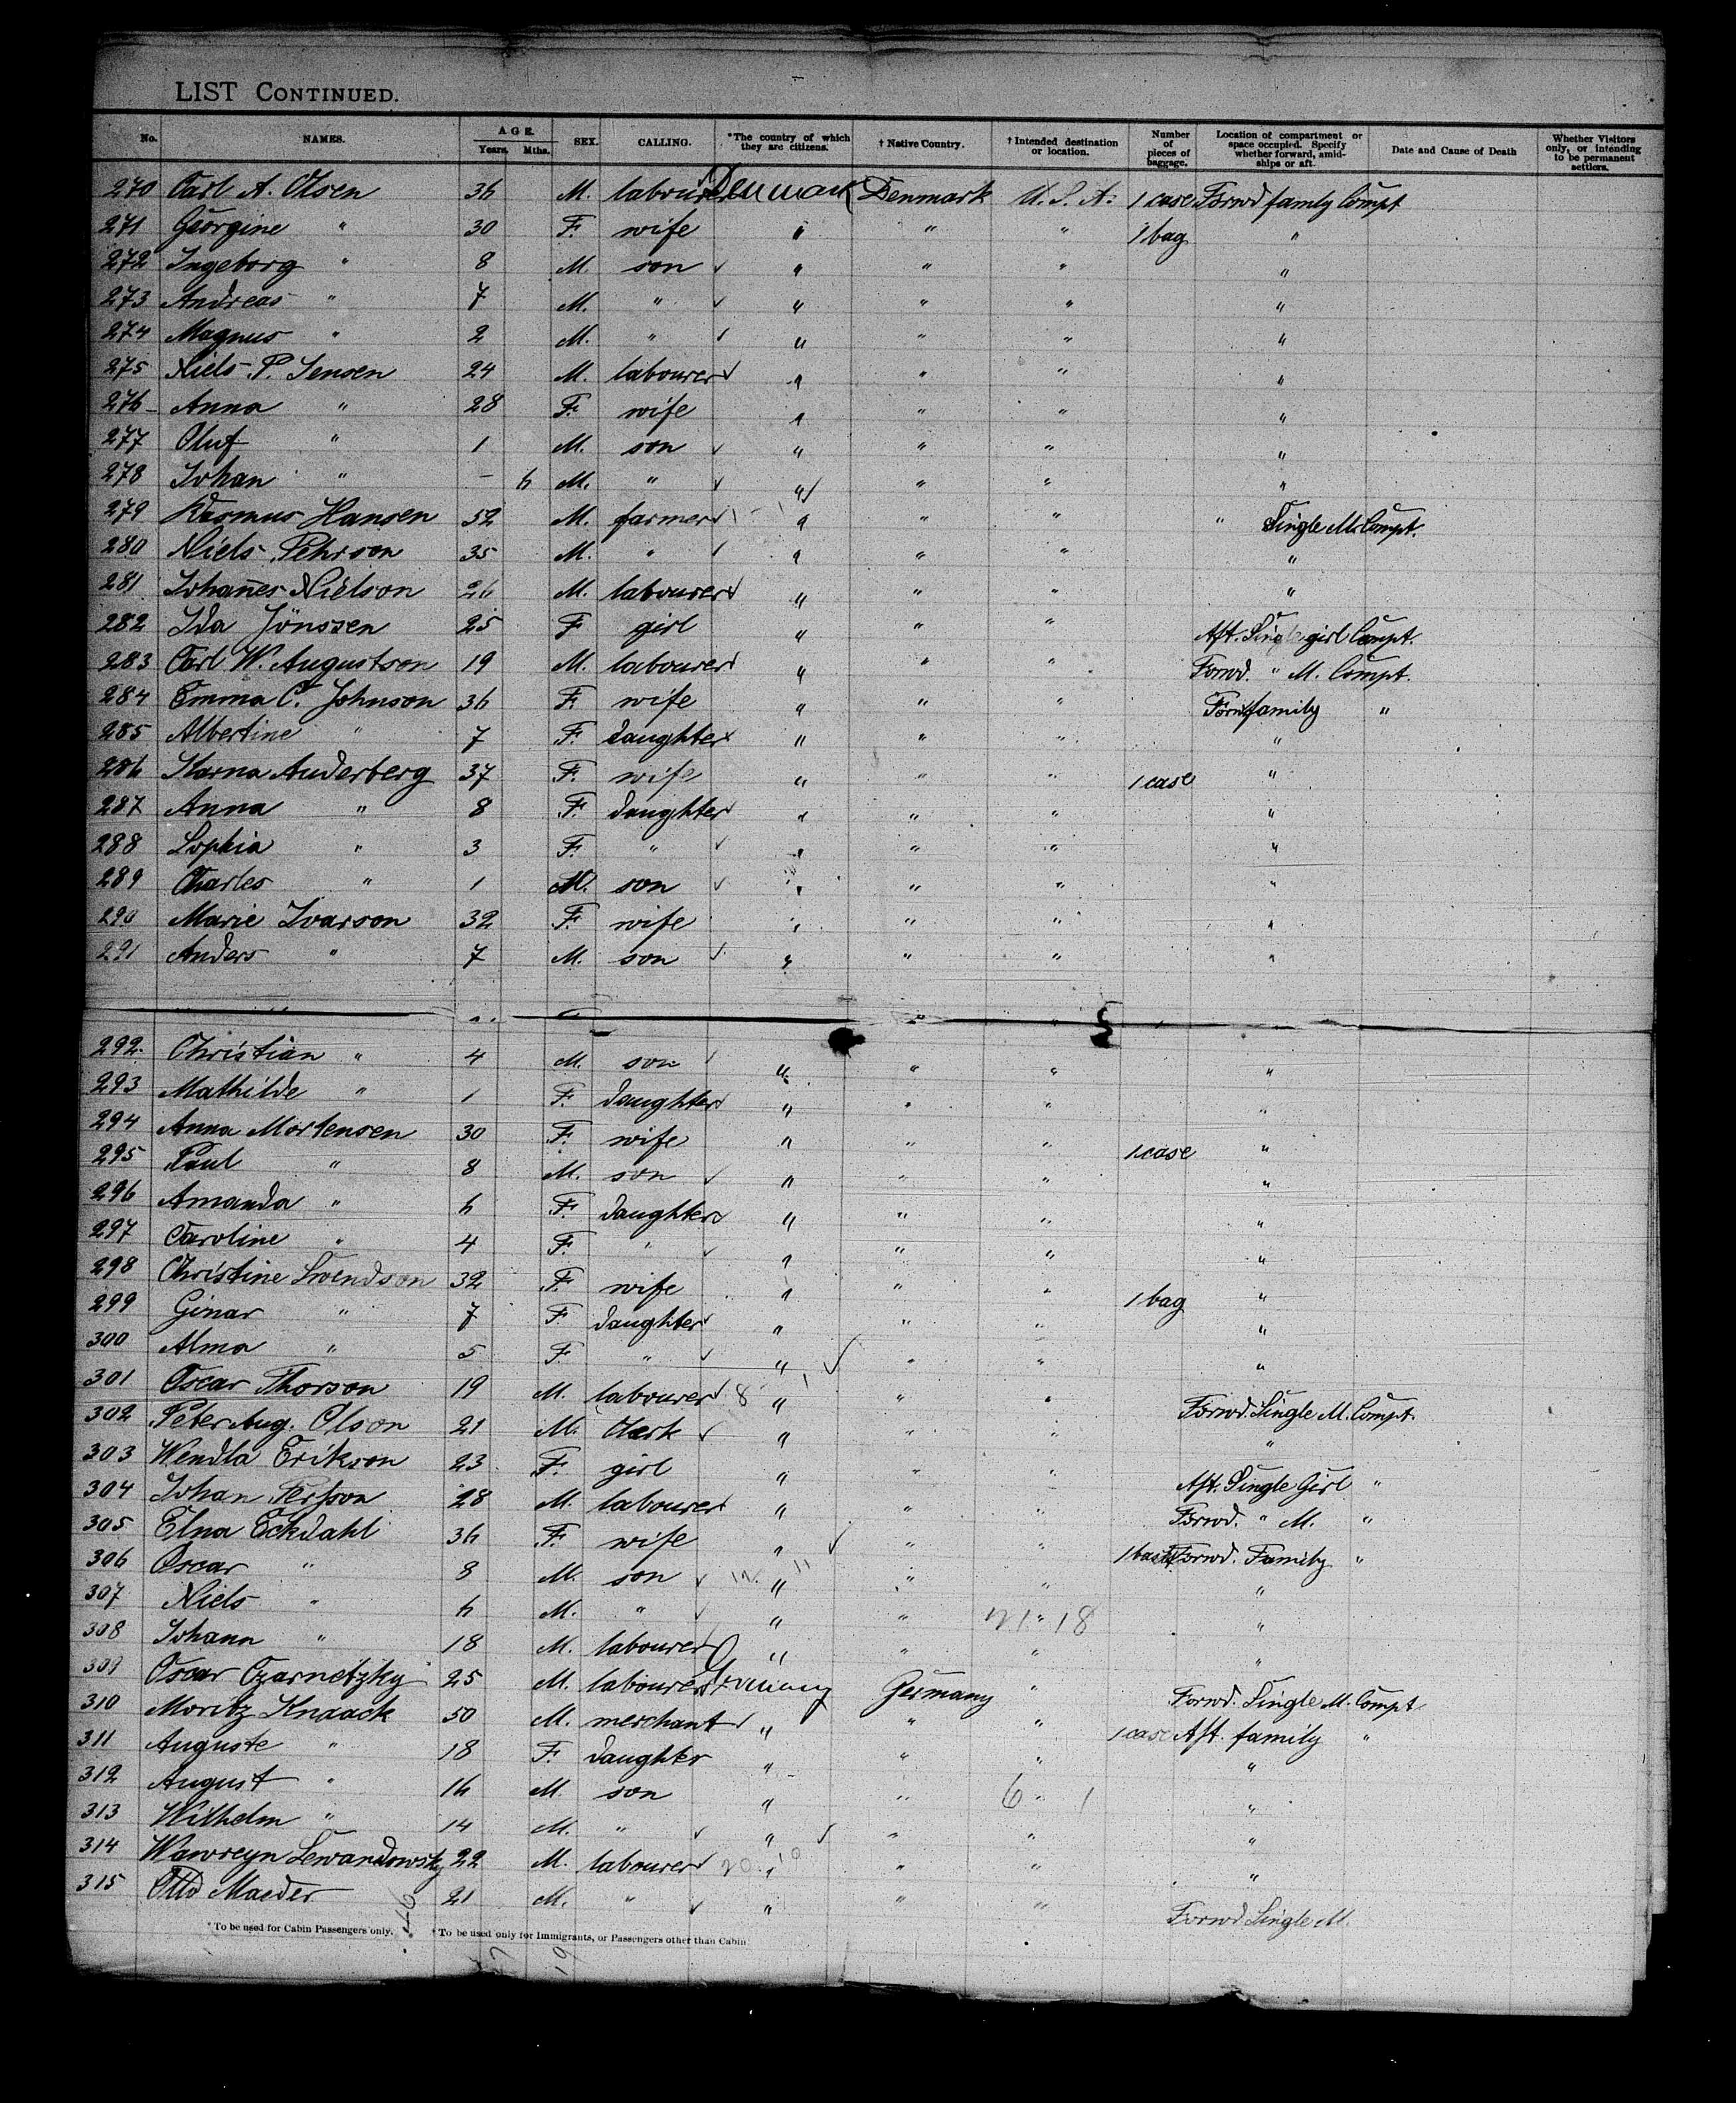 LIST CONTINUED.
No. NAMES. AGE. Years. Mths. SEX. CALLING. *The country of which they are citizens. † Native Country. † Intended destination or location. Number of pieces of baggage. Location of compartment or space occupied. Specify whether forward, amidships or aft. Date and Cause of Death Whether Visitors only, or intending to be permanent settlers.
270 Carl A. Olsen 36 M. labourer Denmark Denmark U.S.A. 1 case Forwd family Compt
271 Georgine " 30 F. wife " " " 1 bag "
272 Ingeborg " 8 M. son " " " "
273 Andreas " 7 M. " " " " "
274 Magnus " 2 M. " " " " "
275 Niels P. Jensen 24 M. labourer " " " "
276 Anna " 28 F. wife " " " "
277 Oluf " 1 M. son " " " "
278 Johan " – 6 M. " " " " "
279 Rasmus Hansen 52 M. farmer " " " " Single M. Compt.
280 Niels Pehrson 35 M. " " " " "
281 Johanes Nielson 26 M. labourer " " " "
282 Ida Jönssen 25 F girl " " " Aft. Single girl Compt.
283 Carl W. Augustson 19 M. labourer " " " Forwd. " M. Compt.
284 Emma C. Johnson 36 F. wife " " " Forwd family "
285 Albertine " 7 F. daughter " " " "
286 Karna Anderberg 37 F. wife " " " 1 case "
287 Anna " 8 F. daughter " " " "
288 Sophia " 3 F. " " " " "
289 Charles " 1 M. son " " " "
290 Marie Ivarson 32 F. wife " " " "
291 Anders " 7 M. son " " " "
292 Christian " 4 M. son " " " "
293 Mathilde " 1 F. daughter " " " "
294 Anna Mortensen 30 F. wife " " " 1 case "
295 Paul " 8 M. son " " " "
296 Amanda " 6 F. daughter " " " "
297 Caroline " 4 F. " " " " "
298 Christine Svendson 32 F. wife " " " 1 bag "
299 Ginar " 7 F. daughter " " " "
300 Alma " 5 F. " " " " "
301 Oscar Thorson 19 M. labourer 8 " " " Forwd. Single M. Compt.
302 Peter Aug. Olson 21 M. Clerk " " " "
303 Wendla Erikson 23 F. girl " " " Aft. Single Girl "
304 Johan Persson 28 M. labourer " " " Forwd. " M. "
305 Elna Eckdahl 36 F. wife " " " 1 Forwd. Family "
306 Oscar " 8 M. son " " " "
307 Niels " 6 M. " " " 21 " 18 "
308 Johann " 18 M. labourer " " " "
309 Oscar Czarnetzky 25 M. labourer Germany Germany " Forwd. Single M. Compt
310 Moritz Knaack 50 M. merchant " " " 1 case Aft. family "
311 Auguste " 18 F. daughter " " " "
312 August " 16 M. son " " 6 " 1 "
313 Wilhelm " 14 M. " " " " "
314 Wawreyn Lewandowsky 22 M. labourer 20 " " " "
315 Otto Maeder 21 M. " " " " Forwd Single M.
* To be used for Cabin Passengers only. † To be used only for Immigrants, or Passengers other than Cabin
46
19